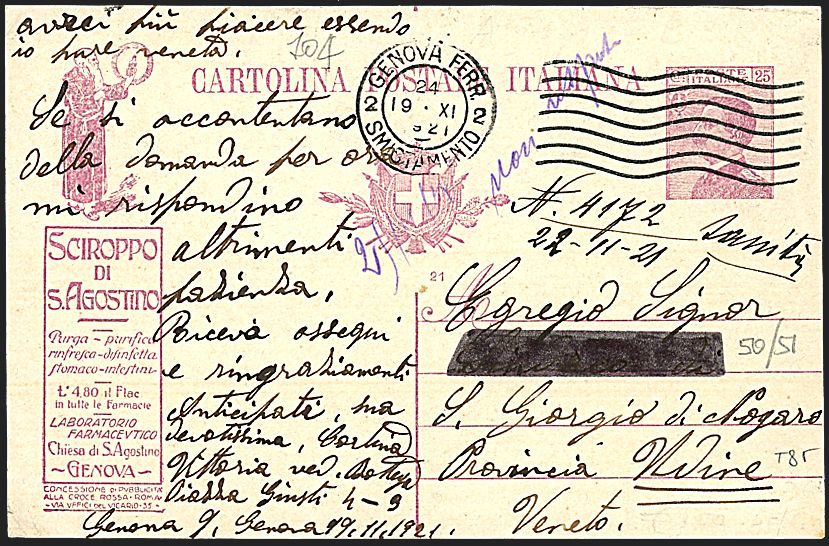 avrei più piacere essendo
io pure veneta.
104
CARTOLINA POSTALE ITALIANA
GENOVA FERR.
24
19 · XI
1921
2 2
SMISTAMENTO
POSTE 25
ITALIANE
Se si accontentano
della domanda per ora
mi rispondino
altrimenti
pazienza,
Riceva ossequi
e ringraziamenti
Anticipati, sua
devotissima, Cortina
Vittoria ved.
Piazza Giusti 4-9
Genova 9, Genova 19.11.1921.
SCIROPPO
DI
S. AGOSTINO
Purga - purifica
rinfresca - disinfetta
stomaco - intestini
L. 4,80 il Flac
in tutte le Farmacie
LABORATORIO
FARMACEVTICO
Chiesa di S. Agostino
~ GENOVA ~
CONCESSIONE DI PVBBLICITÀ
ALLA CROCE ROSSA - ROMA
- VIA VFFICI DEL VICARIO · 35 -
Non
N. 4172
22-11-21 sanità
21
Egregio Signor
50/51
S. Giorgio di Nogaro
Provincia Udine
T85
Veneto.